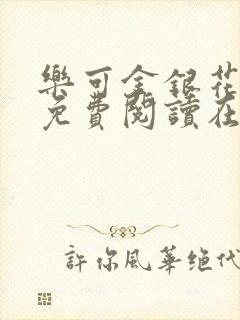 樂可金銀花
免費閱讀在
許你風華绝代